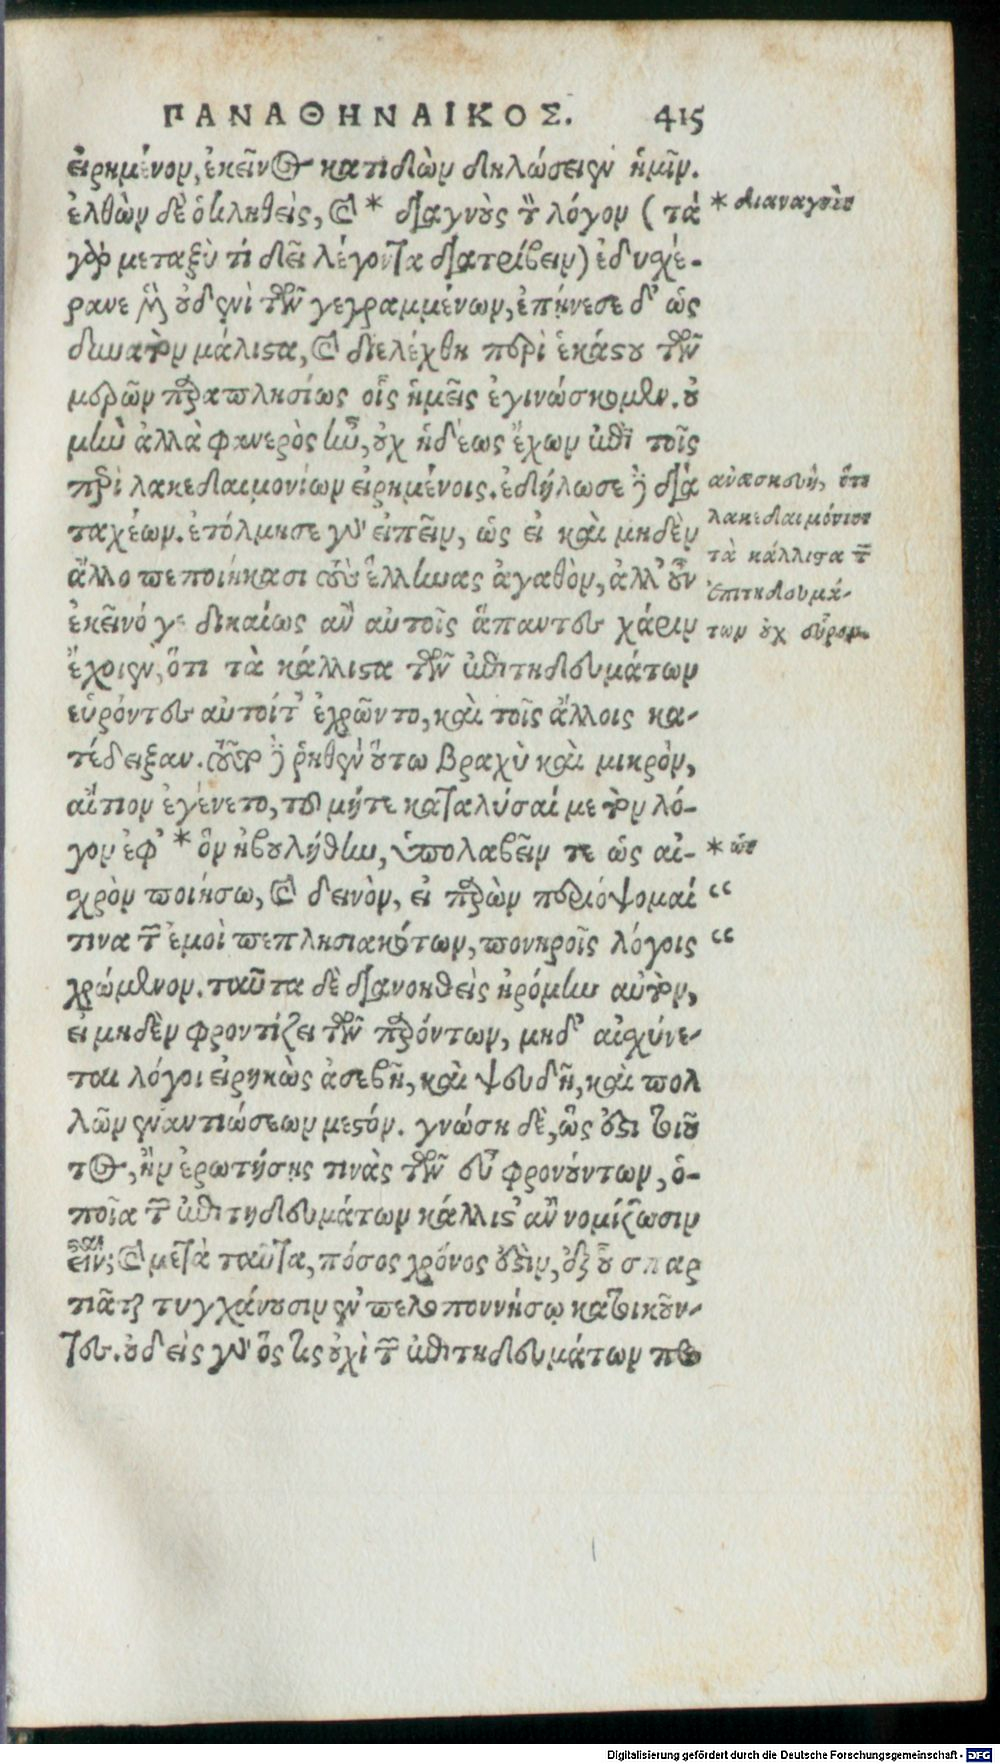 ΠΑΝΑΘΗΝΑΙΚΟΣ. 415
εἰρημένον, ἐκεῖνος κατιδὼν δηλώσειεν ἡμῖν.
ἐλθὼν δὲ ὁ κληθεὶς, καὶ * διαγνοὺς τὸν λόγον (τὰ * διαναγνοὺς
γὰρ μεταξὺ τί δεῖ λέγοντα διατρίβειν) ἐδυσχέ-
ρανε μὲν οὐδενὶ τῶν γεγραμμένων, ἐπῄνεσε δ' ὡς
δυνατὸν μάλιστα, καὶ διελέχθη περὶ ἑκάστου τῶν
μερῶν παραπλησίως οἷς ἡμεῖς ἐγινώσκομεν. οὐ
μὴν ἀλλὰ φανερὸς ἦν, οὐχ ἡδέως ἔχων ἐπὶ τοῖς
περὶ λακεδαιμονίων εἰρημένοις. ἐδήλωσε δὲ διὰ
ταχέων. ἐτόλμησε γὰρ εἰπεῖν, ὡς εἰ καὶ μηδὲν
ἄλλο πεποιήκασι τοὺς ἕλληνας ἀγαθὸν, ἀλλ' οὖν
ἐκεῖνό γε δικαίως ἂν αὐτοῖς ἅπαντες χάριν
ἔχοιεν, ὅτι τὰ κάλλιστα τῶν ἐπιτηδευμάτων
εὑρόντες αὐτοί τ' ἐχρῶντο, καὶ τοῖς ἄλλοις κα-
τέδειξαν. τοῦτο δὲ ῥηθὲν οὕτω βραχὺ καὶ μικρὸν,
αἴτιον ἐγένετο, τοῦ μήτε καταλύσαί με τὸν λό-
γον ἐφ' * ὃν ἠβουλήθην, ὑπολαβεῖν τε ὡς αἰ- * ὧν
σχρὸν ποιήσω, καὶ δεινὸν, εἰ παρὼν περιόψομαί “
τινα τῶν ἐμοὶ πεπλησιακότων, πονηροῖς λόγοις “
χρώμενον. ταῦτα δὲ διανοηθεὶς ἠρόμην αὐτὸν,
εἰ μηδὲν φροντίζει τῶν παρόντων, μηδ' αἰσχύνε-
ται λόγον εἰρηκὼς ἀσεβῆ, καὶ ψευδῆ, καὶ πολ
λῶν ἐναντιώσεων μεστόν. γνώσῃ δὲ, ὡς ἔστι τοιοῦ
τος, ἢν ἐρωτήσῃς τινὰς τῶν εὖ φρονούντων, ὁ-
ποῖα τῶν ἐπιτηδευμάτων κάλλιστ' ἂν νομίζωσιν
εἶναι; καὶ μετὰ ταῦτα, πόσος χρόνος ἐστὶν, ἐξ οὗ σπαρ
τιᾶται τυγχάνουσιν ἐν πελοποννήσῳ κατοικοῦν-
τες. οὐδεὶς γὰρ ὅς τις οὐχὶ τῶν ἐπιτηδευμάτων προ
ἀνασκευὴ, ὅτι
λακεδαιμόνιοι
τὰ κάλλιστα τῶν
ἐπιτηδευμά-
των οὐχ εὗρον.
Digitalisierung gefördert durch die Deutsche Forschungsgemeinschaft - DFG